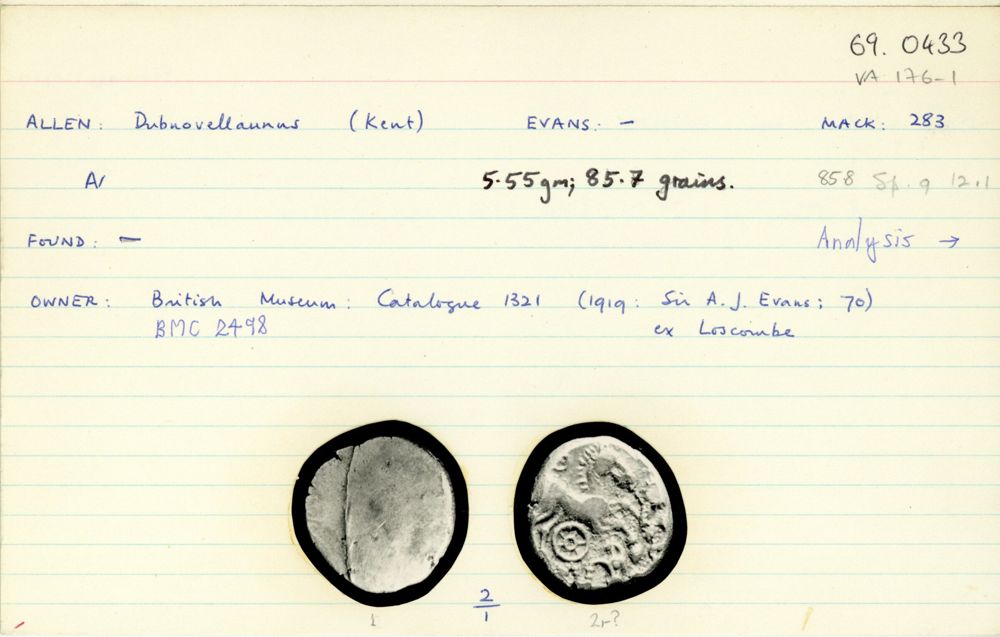 69. 0433
VA 176-1
ALLEN: Dubnovellaunus (Kent) EVANS: - MACK: 283
AV 5.55gm; 85.7 grains. 858 Sp. 9 12.1
FOUND: - Analysis →
OWNER: British Museum: Catalogue 1321 (1919: Sir A. J. Evans; 70)
BMC 2498 ex Loscombe
2
1
1 2r?